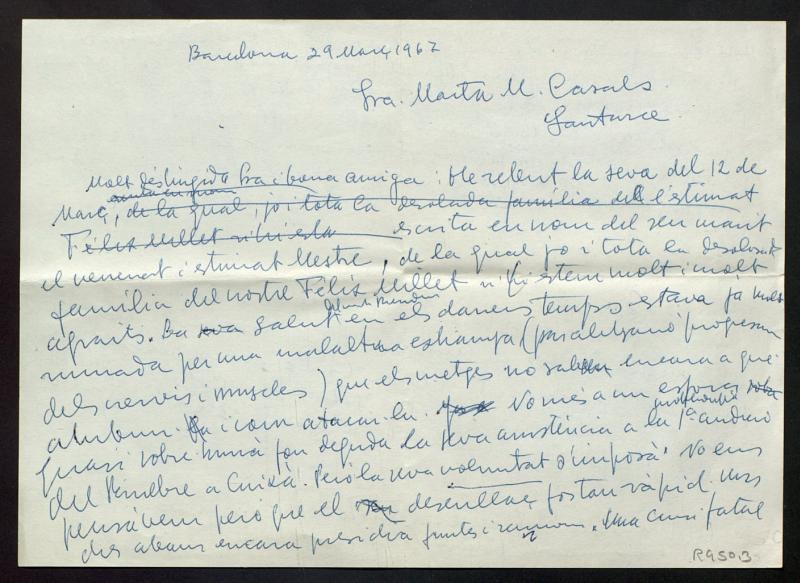 Barcelona 29 Març 1967
Sra. Marta M. Casals.
Santurce
Molt distingida Sra i bona amiga: He rebut la seva del 12 de
Març, de la qual, jo i tota la desolada família del l'estimat
Fèlix Millet n'hi esta escrita en nom del seu marit
el venerat i estimat Mestre, de la qual jo i tota la desolada
família del nostre Fèlix Millet n'hi estem molt i molt
agraits. La seva salut en els darrers temps estava ja molt
minada per una malaltia estranya (paralització progressiva
dels nervis i muscles) que els metges no saben encara a què
atribuir i com atacar-la. Només a un esforç
quasi sobrehumà fou deguda la seva assistència a la 1ª audició
del Pessebre a Cuixà. Però la seva voluntat s'imposà. No ens
pensàvem però que el desenllaç fos tan ràpid. Uns
dies abans encara presidia juntes i reunions. Una crisi fatal
R950.3